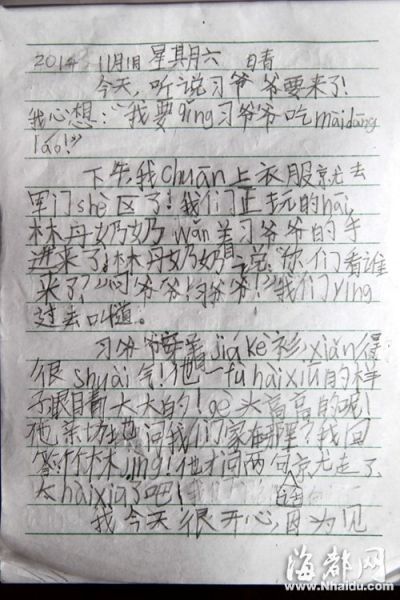 2014. 11月1日 星期六 日青
今天,听说习爷爷要来了!
我心想:“我要qǐng习爷爷吃màidāng
láo!”
下午我chuān上衣服就去
军门shè区了!我们正玩的hāi,
林丹奶奶wǎn着习爷爷的手
进来了!林丹奶奶说:“你们看谁
来了?”“习爷爷!习爷爷!”我们yíng
过去叫道。
习爷爷穿着jiá kè衫,xiǎn得
很shuài气!他一fù hàixiū的样
子眼睛大大的!gè头高高的呢!
他亲切地问我们家在哪里?我回
答:竹林jìng!他才问两句就走了
太hàixiū了吧!
我今天很开心,因为见
海都网
www.Nhaidu.com